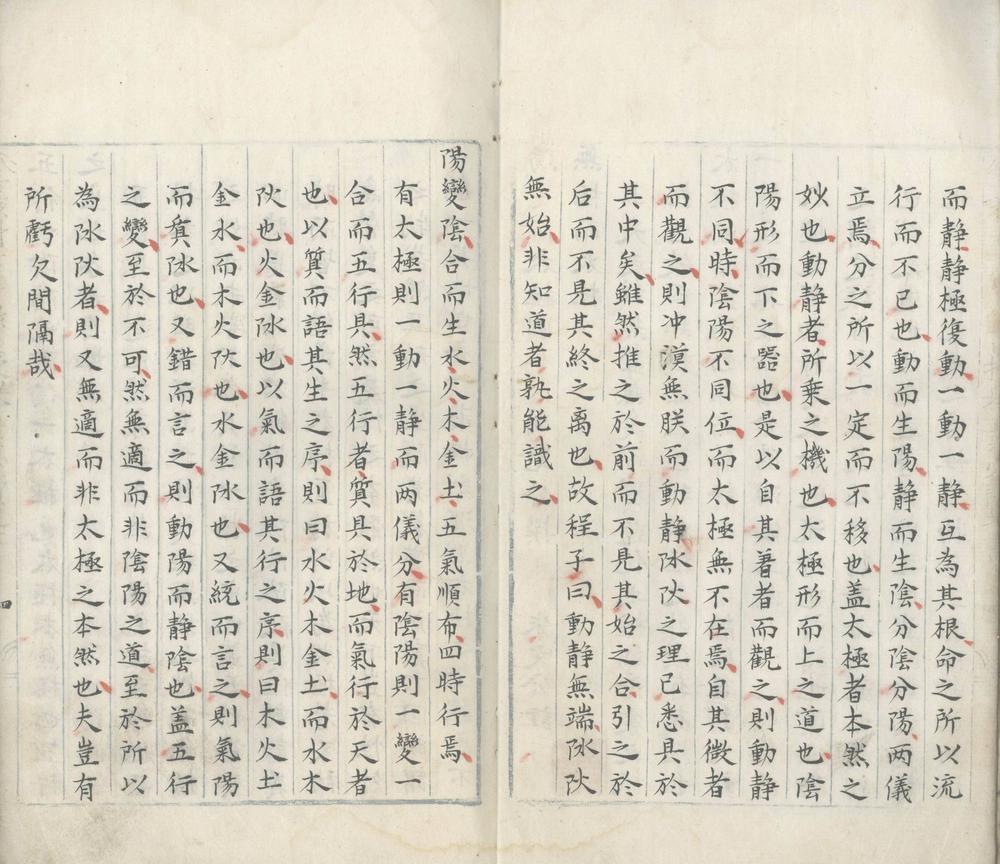 而静静極復動一動一静互為其根命之所以流
行而不已也動而生陽静而生陰分陰分陽两儀
立焉分之所以一定而不移也盖太極者本然之
妙也動静者所乗之機也太極形而上之道也陰
陽形而下之器也是以自其著者而觀之則動静
不同時陰陽不同位而太極無不在焉自其微者
而觀之則冲漠無朕而動静阥阦之理已悉具於
其中矣雖然推之於前而不見其始之合引之於
后而不見其終之离也故程子曰動静無端阥阦
無始非知道者孰能識之
陽變陰合而生水火木金土五氣順布四時行焉
有太極則一動一静而两儀分有陰陽則一變一
合而五行具然五行者質具於地而氣行於天者
也以質而語其生之序則曰水火木金土而水木
阦也火金阥也以氣而語其行之序則曰木火土
金水而木火阦也水金阥也又統而言之則氣陽
而質阥也又錯而言之則動陽而静陰也盖五行
之變至於不可然無適而非陰陽之道至於所以
為阥阦者則又無適而非太極之本然也夫豈有
所虧欠間隔哉